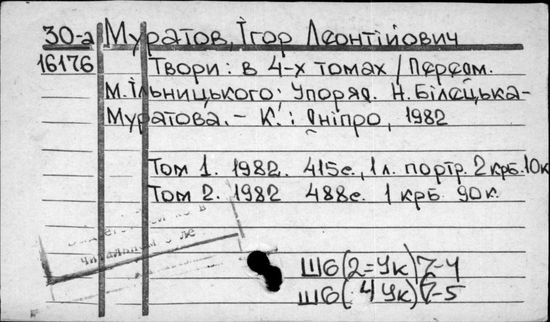 30-а Муратов, Ігор Леонтійович
16176 Твори: в 4-х томах / Передм.
М.Ільницького; Упоряд. Н.Білецька-
Муратова. – К.: Дніпро, 1982
Том 1. 1982. 415с., 1 л. портр. 2 крб. 10к
Том 2. 1982 488с. 1 крб 90к.
Ш6(2=Ук)7-4
Ш6( 4Ук)7-5